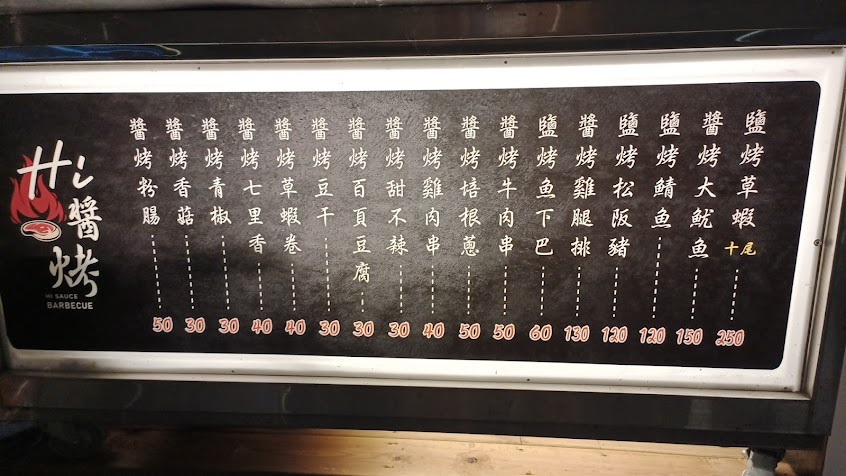 Hi
醬
烤
HI SAUCE
BARBECUE
鹽烤草蝦 十尾 250
醬烤大魷魚 150
鹽烤鯖魚 120
鹽烤松阪豬 120
醬烤雞腿排 130
鹽烤魚下巴 60
醬烤牛肉串 50
醬烤培根蔥 50
醬烤雞肉串 40
醬烤甜不辣 30
醬烤百頁豆腐 30
醬烤豆干 30
醬烤草蝦卷 40
醬烤七里香 40
醬烤青椒 30
醬烤香菇 30
醬烤粉腸 50